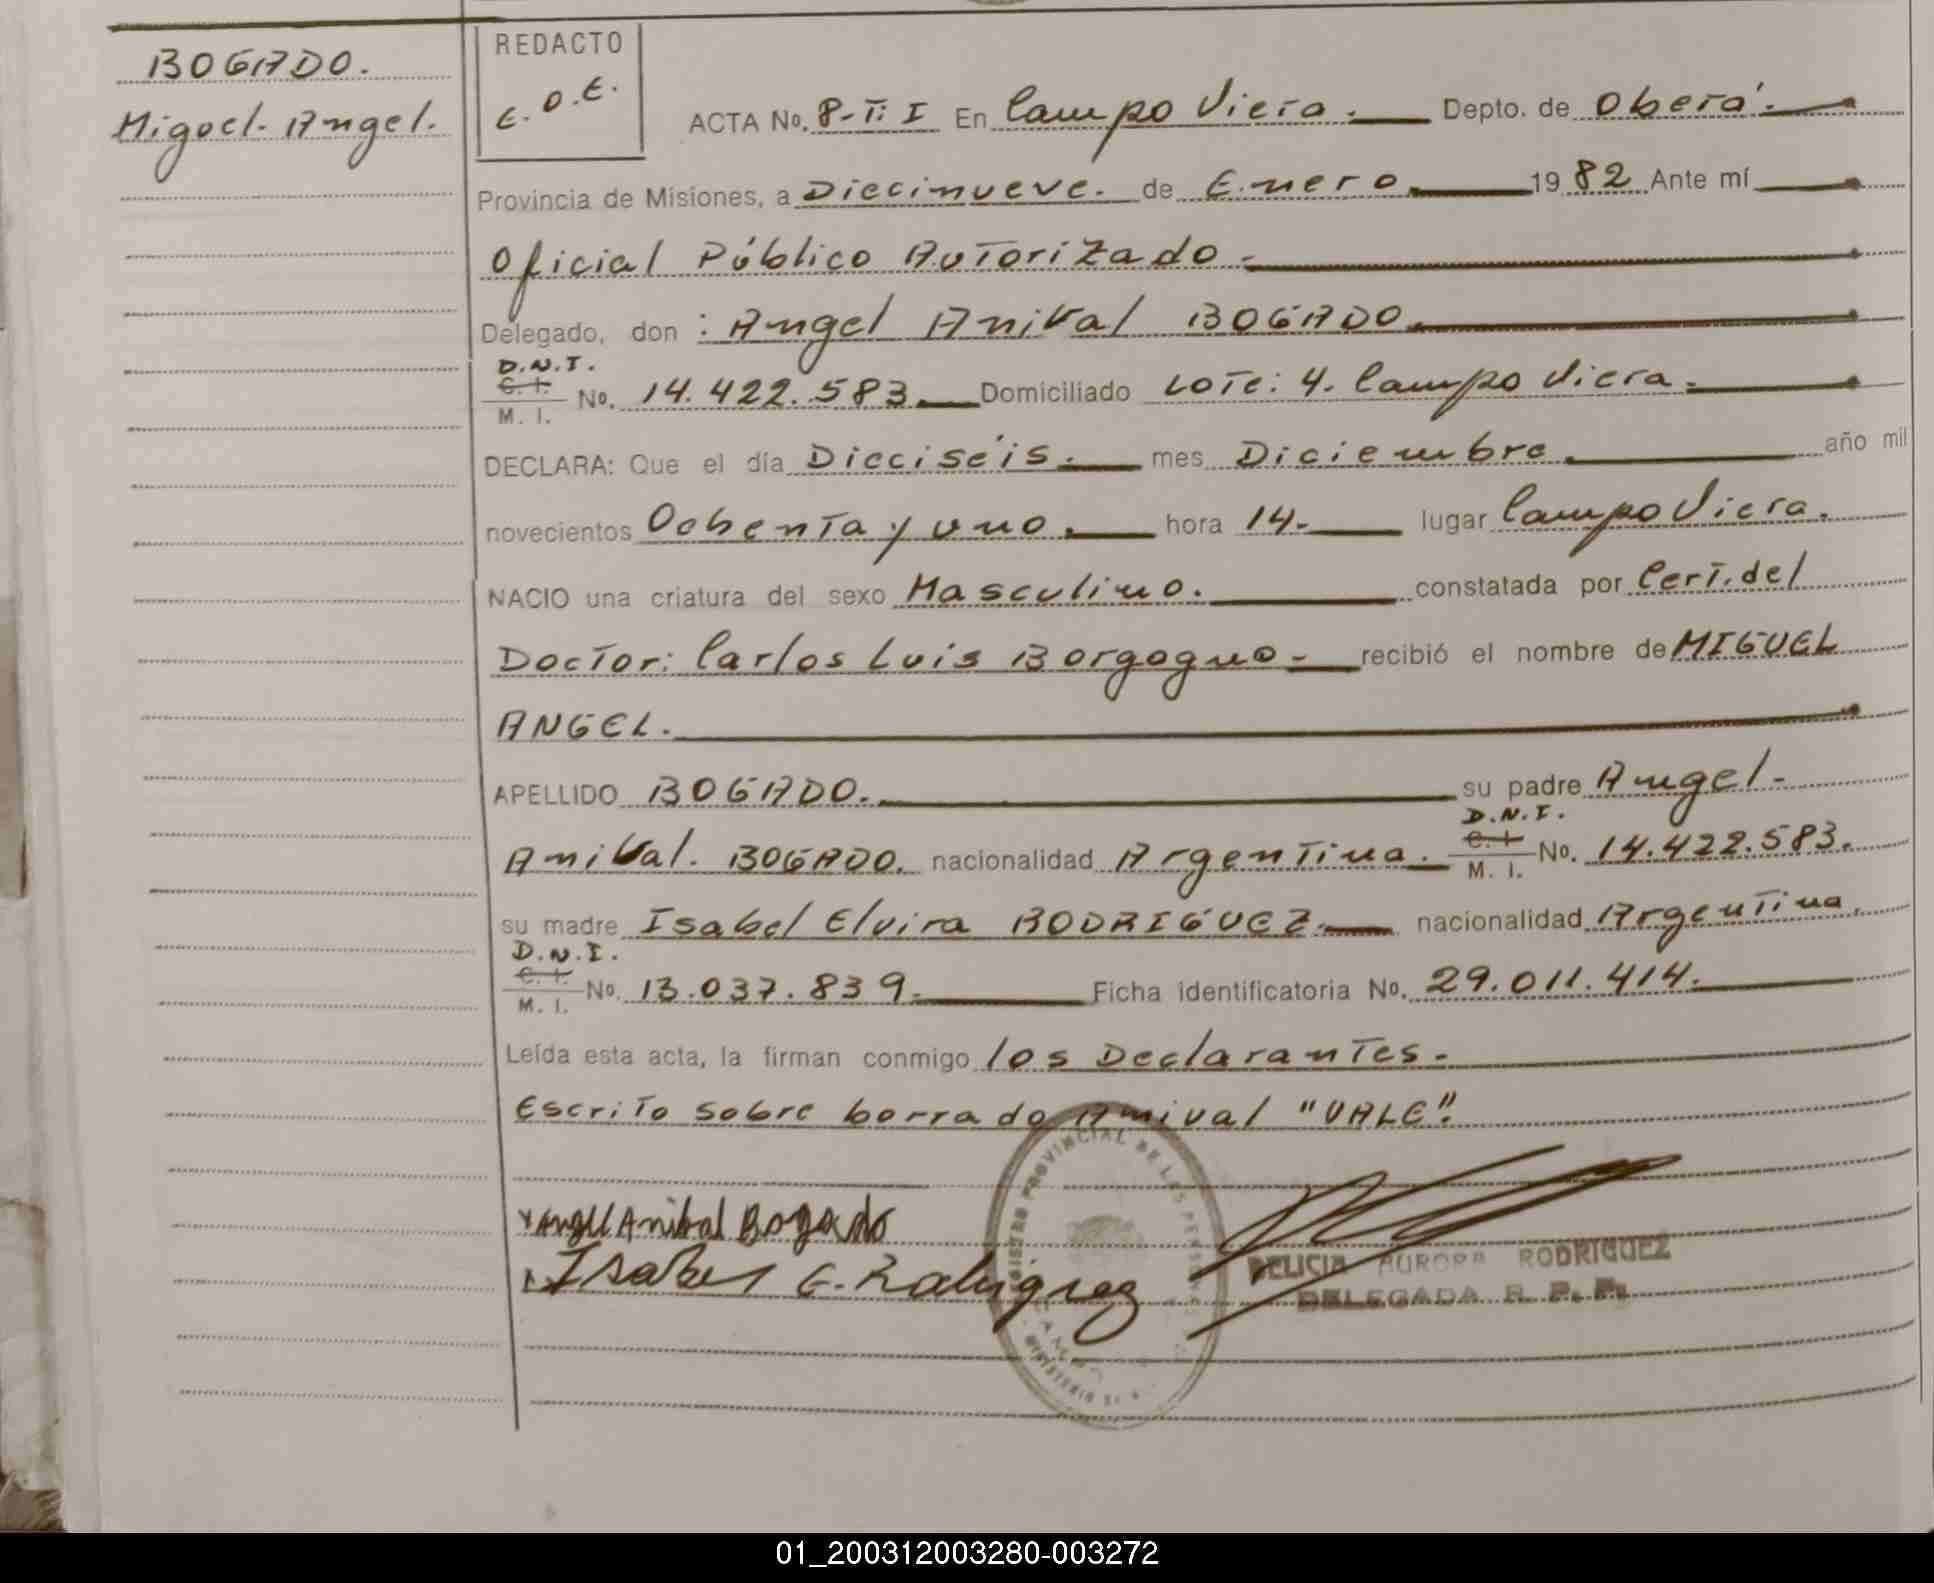 BOGADO.
Miguel Angel.
REDACTO
E.O.E.
ACTA No. 8-T: I En Campo Viera. Depto. de Oberá.
Provincia de Misiones, a Diecinueve. de Enero 1982 Ante mí
Oficial Público Autorizado.
Delegado, don : Angel Anival BOGADO.
D.N.I.
C. I.
M. I. No. 14.422.583. Domiciliado Lote: 4. Campo Viera.
DECLARA: Que el día Dieciséis. mes Diciembre. año mil
novecientos Ochenta y uno. hora 14. lugar Campo Viera.
NACIO una criatura del sexo Masculino. constatada por Cert. del
Doctor: Carlos Luis Borgogno - recibió el nombre de MIGUEL
ANGEL.
APELLIDO BOGADO. su padre Angel-
D.N.I.
Anival. BOGADO. nacionalidad Argentina. C. I. M. I. No. 14.422.583.
su madre Isabel Elvira RODRIGUEZ. nacionalidad Argentina.
D.N.I.
C. I.
M. I. No. 13.037.839. Ficha identificatoria No. 29.011.414.
Leída esta acta, la firman conmigo los Declarantes.
Escrito sobre borrado Anival "VALE".
x Angel Anibal Bogado
Isabel E. Rodriguez
DELICIA AURORA RODRIGUEZ
DELEGADA R. P. P.
01_200312003280-003272